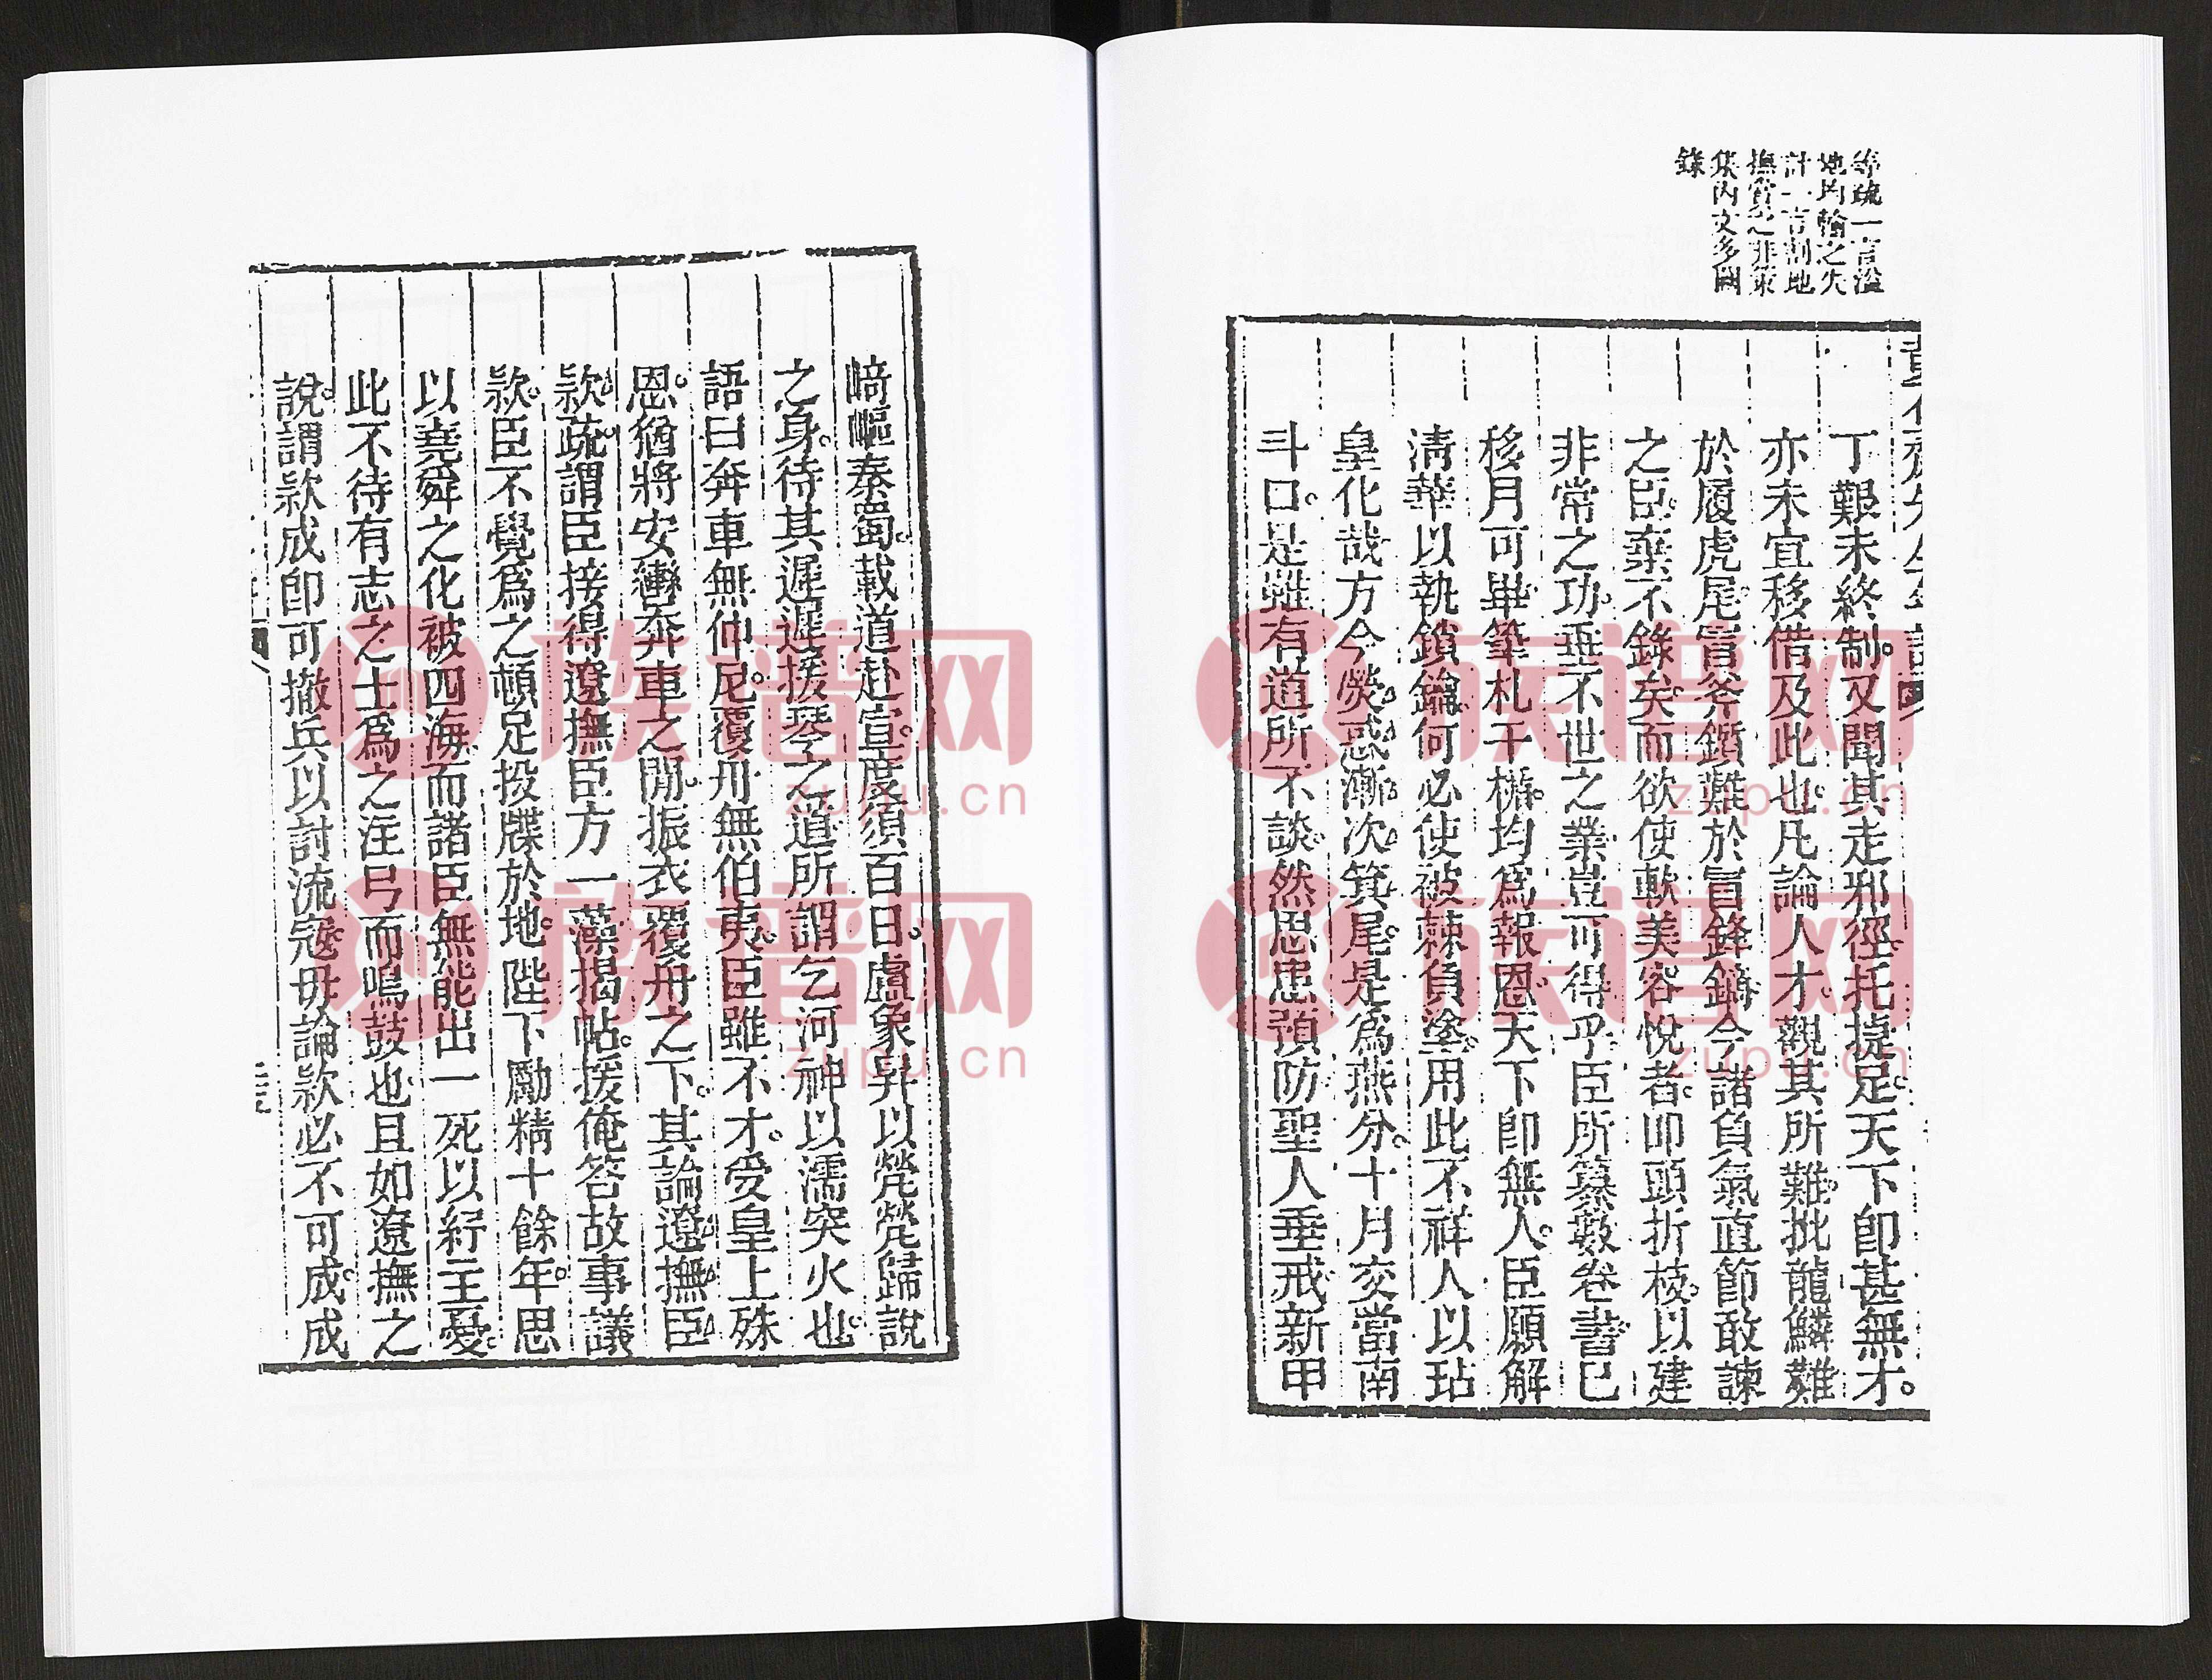 等疏一言溢
地均輸之失
計一言割地
撫賞之非策
集內文多國
錄
丁艱未終制又聞其走邪徑托捷足天下卽甚無才
亦未宜移借及此也凡論人才觀其所難批龍鱗難
於履虎尾冒斧鑕難於冒鋒鏑今諸負氣直節敢諫
之臣棄不錄矣而欲使軟美容悅者叩頭折棱以建
非常之功垂不世之業豈可得乎臣所纂數卷書已
移月可畢筆札干櫓均爲報恩天下卽無人臣願解
淸華以執鎖鑰何必使被棘負塗用此不祥人以玷
皇化哉方今熒惑漸次箕尾是爲燕分十月交當南
斗口是雖有道所不談然思患預防聖人垂戒新甲
崎嶇秦蜀載道赴宣度須百日盧象昇以煢煢歸說
之身待其遲遲援琴之道所謂乞河神以濡突火也
語曰奔車無仲尼覆舟無伯夷臣雖不才受皇上殊
恩猶將安轡奔車之閒振衣覆舟之下其論遼撫臣
款疏謂臣接得遼撫臣方一藻揭帖援俺答故事議
款臣不覺爲之頓足投牒於地陛下勵精十餘年思
以堯舜之化被四海而諸臣無能出一死以紓主憂
此不待有志之士爲之注弓而鳴鼓也且如遼撫之
說謂款成卽可撤兵以討流寇毋論款必不可成成
族谱网
zupu.cn
族谱网
zupu.cn
族谱网
zupu.cn
族谱网
zupu.cn